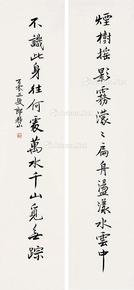 煙樹搖影霧濛〻扁舟盪漾水雲中
不識此身往何處萬水千山覓無踪